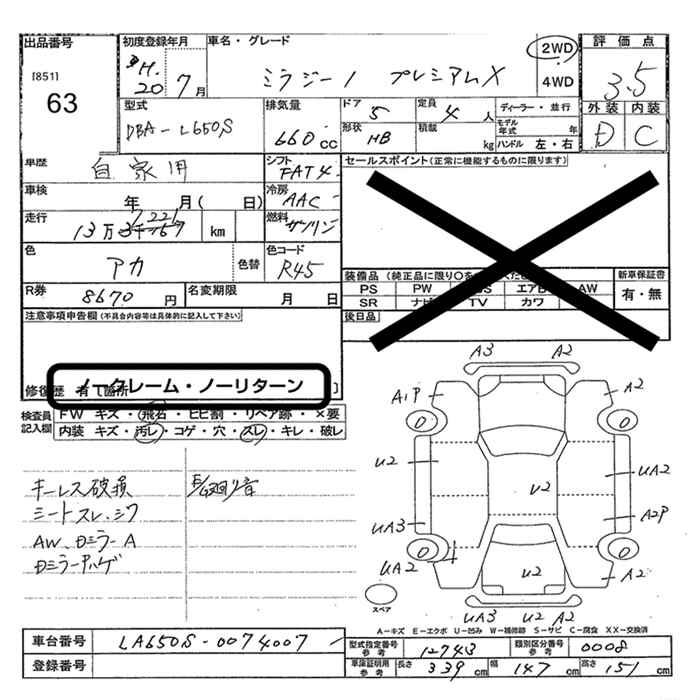 出品番号
[851]
63
初度登録年月
H.20 7月
車名・グレード
ミラジーノ プレミアムX
2WD
4WD
評価点
3.5
外装 内装
D C
型式
DBA-L650S
排気量
660cc
ドア
5
定員
4人
形状
HB
積載
kg
ディーラー・並行
モデル年式 年
ハンドル 左・右
車歴
自家用
シフト
FAT4
車検
年 月( 日)
冷房
AAC
走行
13万
km
燃料
ガソリン
色
アカ
色替
色コード
R45
R券
8670円
名変期限
月 日
セールスポイント(正常に機能するものに限ります)
装備品(純正品に限り○を
PS PW エアB AW
SR ナビ TV カワ
新車保証書
有・無
後日品
注意事項申告欄(不具合内容等は具体的に記入して下さい)
ノークレーム・ノーリターン
修復歴 有 箇所
検査員記入欄
FW キズ・飛石・ヒビ割・リペア跡・×要
内装 キズ・汚レ・コゲ・穴・スレ・キレ・破レ
キーレス破損
シートスレ、シワ
AW、Dミラー A
DミラーPハゲ
E/G廻り音
A3 A2
A1P A2
U2 U2 UA2
UA3 A2P
UA2 U2 A2
UA3 U2 A2
スペア
A-キズ E-エクボ U-凹み W-補修跡 S-サビ C-腐食 XX-交換済
車台番号
LA650S-0074007
登録番号
型式指定番号 参考
12743
類別区分番号 参考
0008
車庫証明用 参考
長さ 339cm 幅 147cm 高さ 151cm